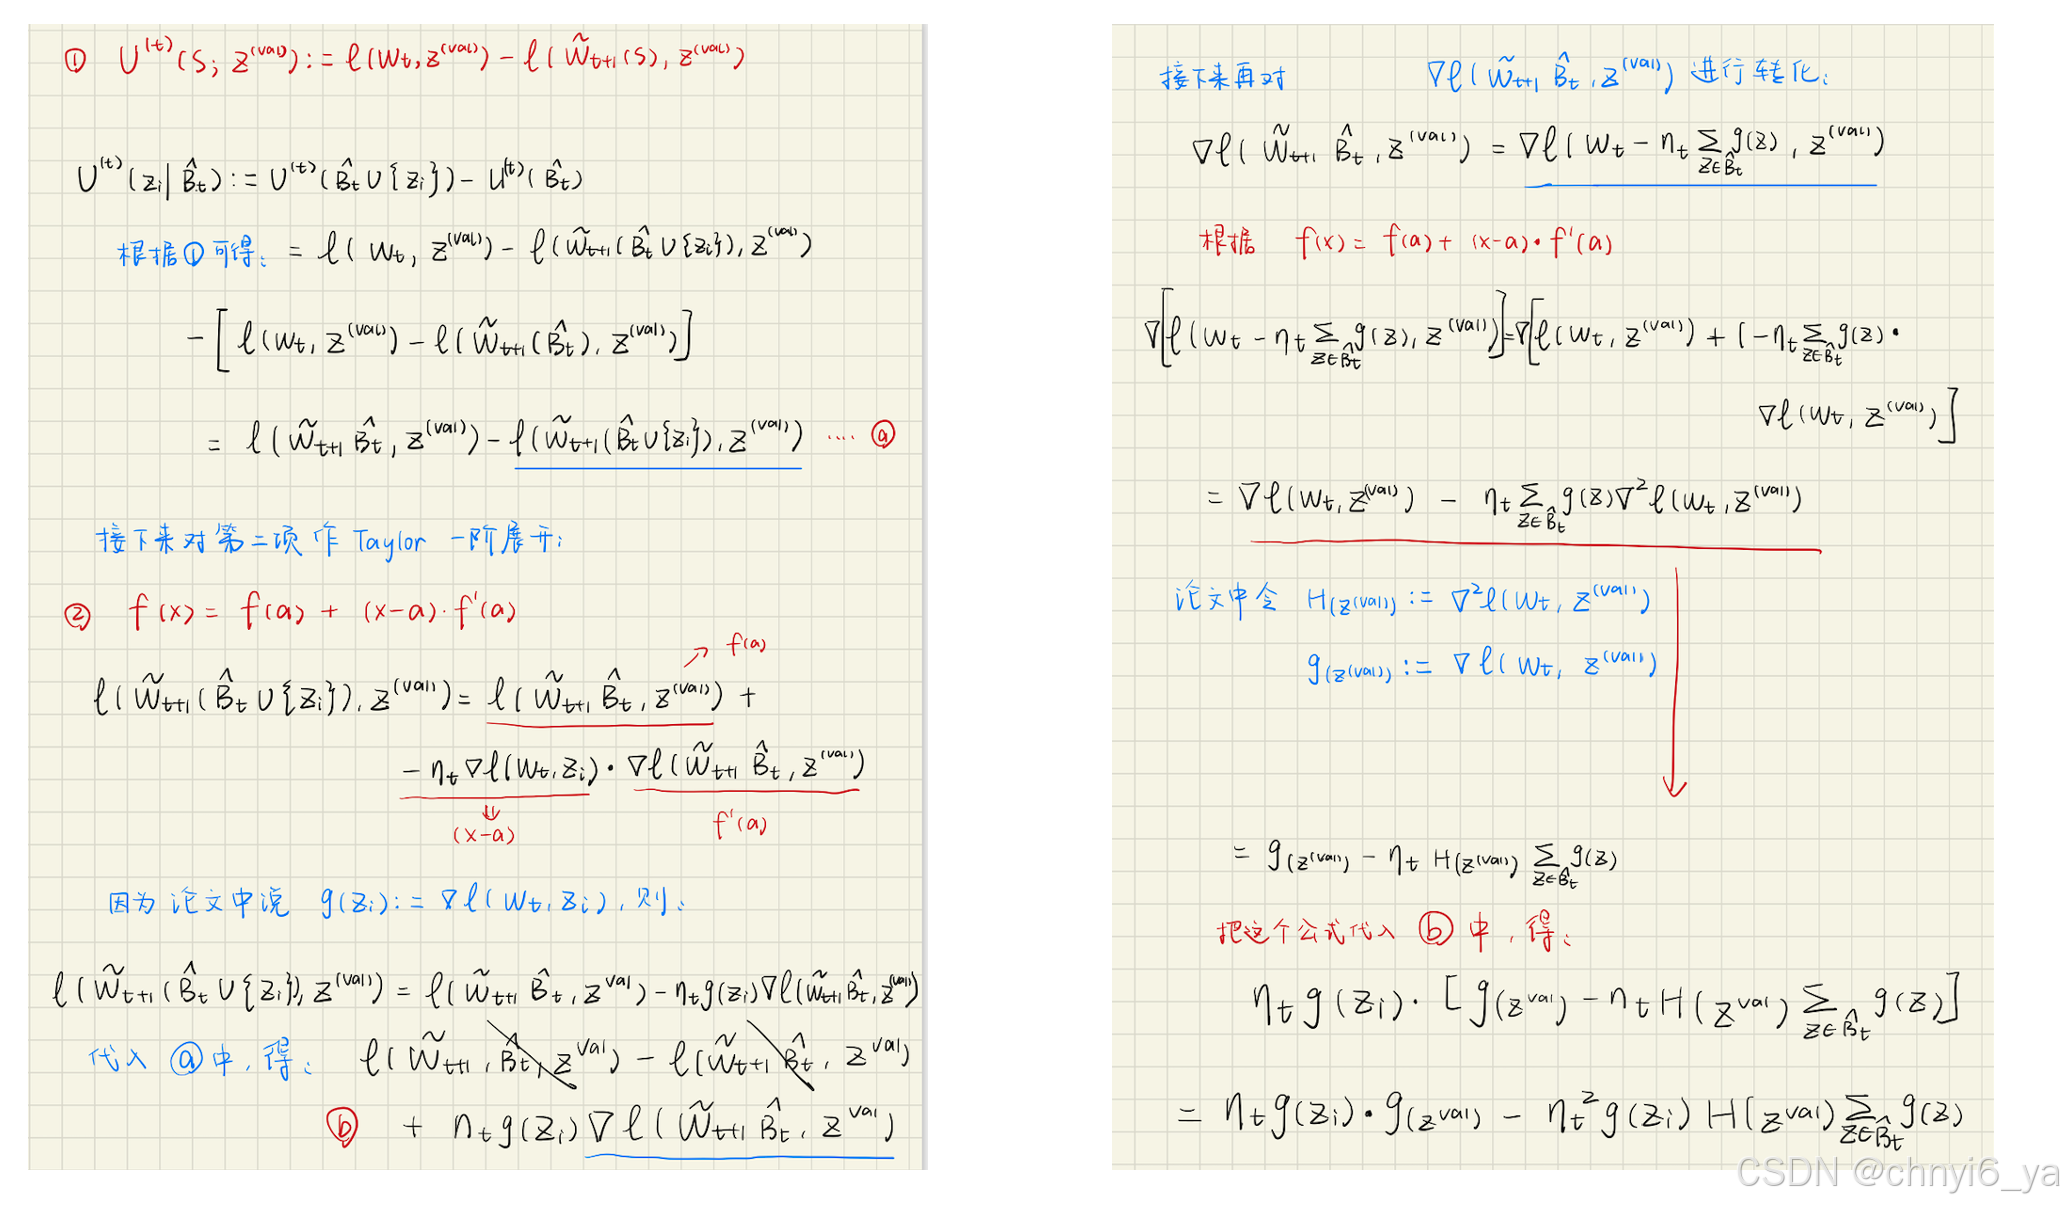 ① U^(t)(S; z^(val)) := ℓ(w_t, z^(val)) − ℓ(w̃_{t+1}(S), z^(val))
U^(t)(z_i | B̂_t) := U^(t)(B̂_t ∪ {z_i}) − U^(t)(B̂_t)
根据①可得: = ℓ(w_t, z^(val)) − ℓ(w̃_{t+1}(B̂_t ∪ {z_i}), z^(val))
− [ℓ(w_t, z^(val)) − ℓ(w̃_{t+1}(B̂_t), z^(val))]
= ℓ(w̃_{t+1} B̂_t, z^(val)) − ℓ(w̃_{t+1}(B̂_t ∪ {z_i}), z^(val)) ···· ⓐ
接下来对第二项作 Taylor 一阶展开:
② f(x) = f(a) + (x−a)·f'(a)
↗ f(a)
ℓ(w̃_{t+1}(B̂_t ∪ {z_i}), z^(val)) = ℓ(w̃_{t+1} B̂_t, z^(val)) +
− η_t ∇ℓ(w_t, z_i) · ∇ℓ(w̃_{t+1} B̂_t, z^(val))
↓
(x−a) f'(a)
因为论文中说 g(z_i) := ∇ℓ(w_t, z_i), 则:
ℓ(w̃_{t+1}(B̂_t ∪ {z_i}), z^(val)) = ℓ(w̃_{t+1} B̂_t, z^val) − η_t g(z_i) ∇ℓ(w̃_{t+1} B̂_t, z^(val))
代入ⓐ中, 得: ℓ(w̃_{t+1}, B̂_t, z^val) − ℓ(w̃_{t+1} B̂_t, z^val)
ⓑ + η_t g(z_i) ∇ℓ(w̃_{t+1} B̂_t, z^val)
接下来再对 ∇ℓ(w̃_{t+1} B̂_t, z^(val)) 进行转化:
∇ℓ(w̃_{t+1} B̂_t, z^(val)) = ∇ℓ(w_t − η_t Σ_{z∈B̂_t} g(z), z^(val))
根据 f(x) = f(a) + (x−a)·f'(a)
∇[ℓ(w_t − η_t Σ_{z∈B̂_t} g(z), z^(val))] = ∇[ℓ(w_t, z^(val)) + (−η_t Σ_{z∈B̂_t} g(z)·
∇ℓ(w_t, z^(val)]
= ∇ℓ(w_t, z^(val)) − η_t Σ_{z∈B̂_t} g(z) ∇²ℓ(w_t, z^(val))
论文中令 H(z^(val)) := ∇²ℓ(w_t, z^(val))
g(z^(val)) := ∇ℓ(w_t, z^(val))
= g(z^(val)) − η_t H(z^(val)) Σ_{z∈B̂_t} g(z)
把这个公式代入 ⓑ 中, 得:
η_t g(z_i) · [g(z^val) − η_t H(z^val) Σ_{z∈B̂_t} g(z)]
= η_t g(z_i) · g(z^val) − η_t² g(z_i) H(z^val) Σ_{z∈B̂_t} g(z)
CSDN @chnyi6_ya